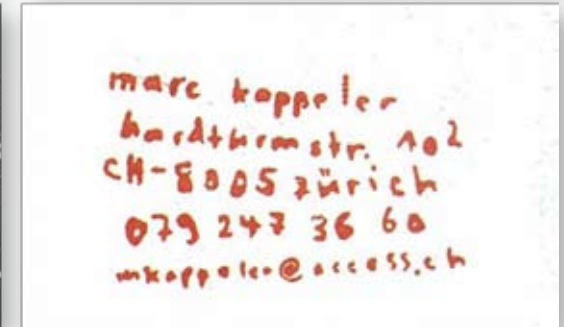 marc kappeler
hardturmstr. 102
CH-8005 zürich
079 247 36 60
mkappeler@access.ch